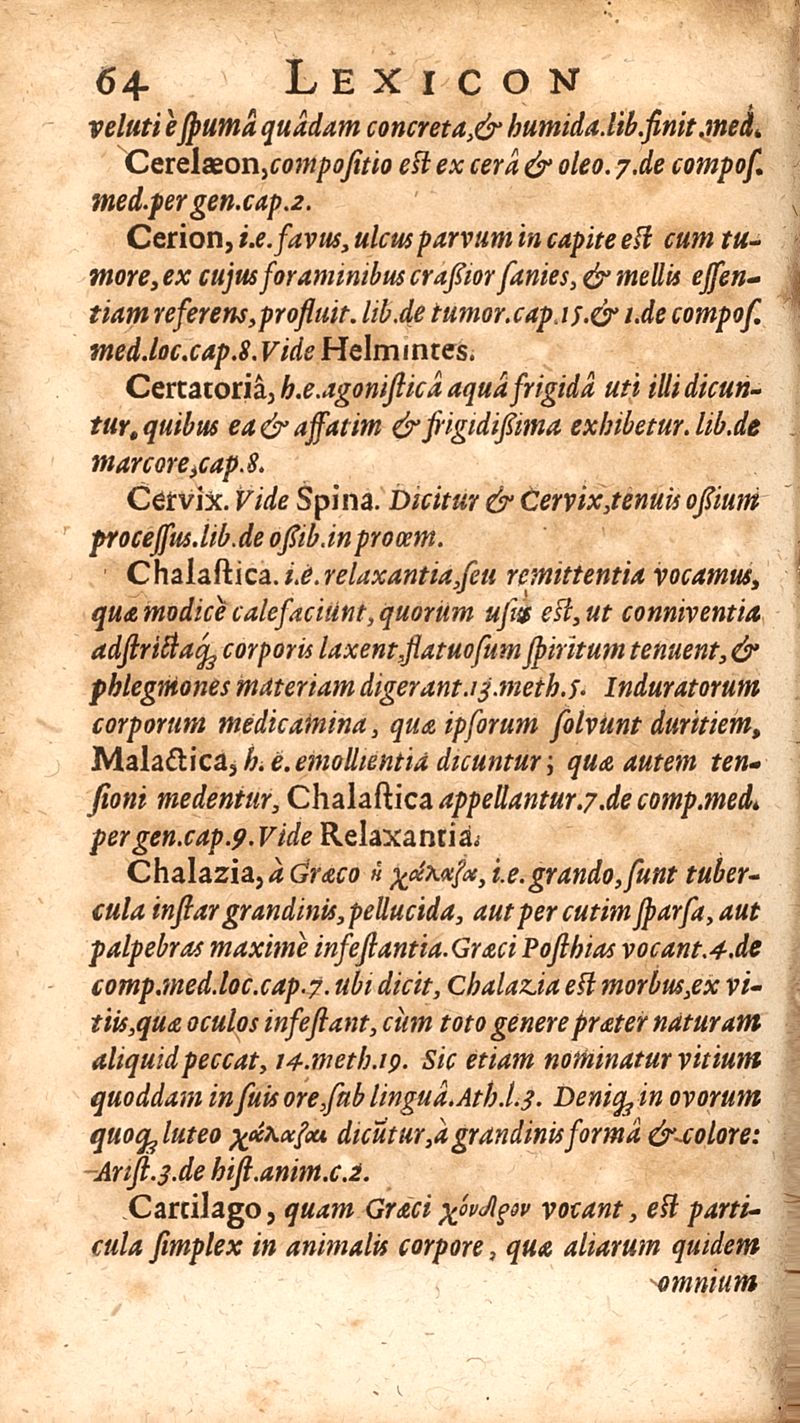 64 LEXICON
veluti è ſpumâ quâdam concreta, & humida. lib. finit. med.
Cerelæon, compoſitio eſt ex cerâ & oleo. 7. de compoſ.
med. per gen. cap. 2.
Cerion, i. e. favus, ulcus parvum in capite eſt cum tu-
more, ex cujus foraminibus craſſior ſanies, & mellis eſſen-
tiam referens, profluit. lib. de tumor. cap. 15. & 1. de compoſ.
med. loc. cap. 8. Vide Helmintes.
Certatoriâ, h. e. agoniſticâ aquâ frigidâ uti illi dicun-
tur, quibus ea & affatim & frigidiſſima exhibetur. lib. de
marcore, cap. 8.
Cervix. Vide Spina. Dicitur & Cervix, tenuis oſſium
proceſſus. lib. de oſſib. in proœm.
Chalaſtica. i. e. relaxantia, ſeu remittentia vocamus,
quæ modicè calefaciunt, quorum uſus eſt, ut conniventia
adſtrictaq́ꝫ corporis laxent, flatuoſum ſpiritum tenuent, &
phlegmones materiam digerant. 13. meth. 5. Induratorum
corporum medicamina, quæ ipſorum ſolvunt duritiem,
Malactica, h. e. emollientia dicuntur; quæ autem ten-
ſioni medentur, Chalaſtica appellantur. 7. de comp. med.
per gen. cap. 9. Vide Relaxantia.
Chalazia, à Græco ἡ χάλαζα, i. e. grando, ſunt tuber-
cula inſtar grandinis, pellucida, aut per cutim ſparſa, aut
palpebras maximè infeſtantia. Græci Poſthias vocant. 4. de
comp. med. loc. cap. 7. ubi dicit, Chalazia eſt morbus, ex vi-
tiis, quæ oculos infeſtant, cùm toto genere præter naturam
aliquid peccat, 14. meth. 19. Sic etiam nominatur vitium
quoddam in ſuis ore, ſub linguâ. Ath. l. 3. Deniqꝫ in ovorum
quoqꝫ luteo χάλαζαι dicūtur, à grandinis formâ & colore:
Ariſt. 3. de hiſt. anim. c. 2.
Cartilago, quam Græci χόνδρον vocant, eſt parti-
cula ſimplex in animalis corpore, quæ aliarum quidem
omnium